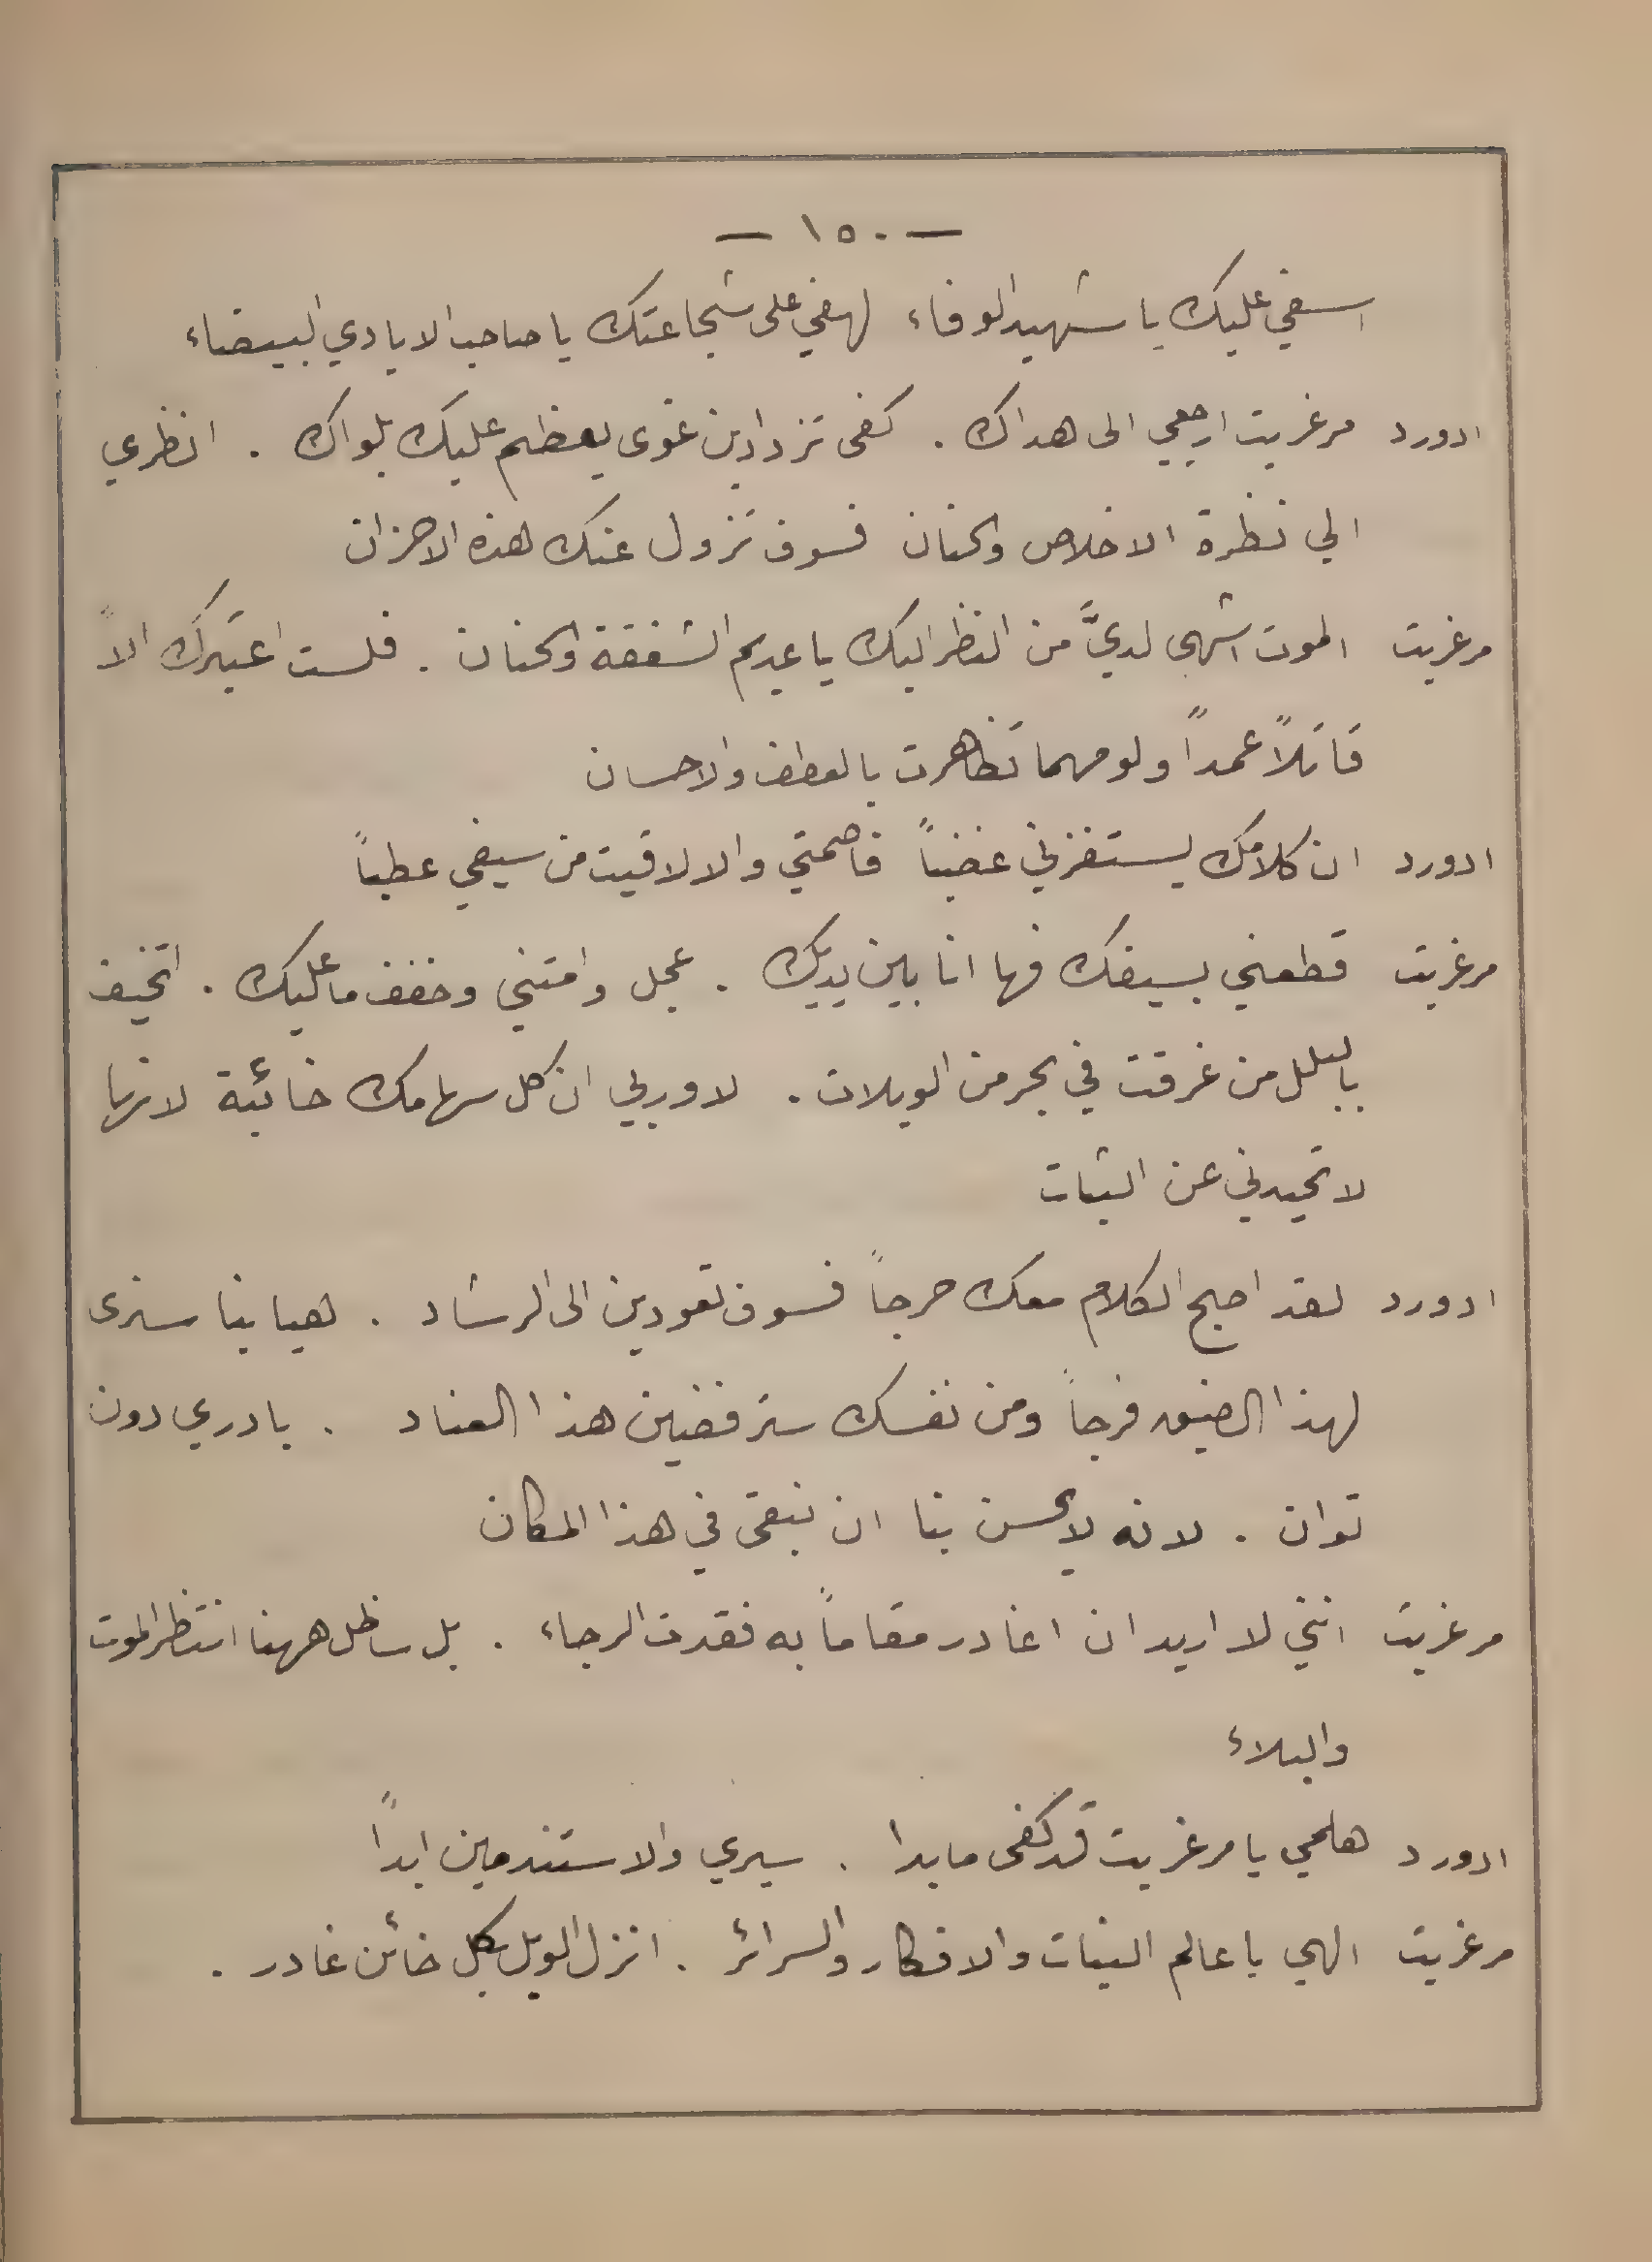 — ١٥٠ —
اسفي عليك يا شهيد الوفاء لهفي على شجاعتك يا صاحب الايادي البيضاء
ادورد مرغريت ارجعي الى هداك . كفى تزدادين غوى يعظم عليك بلواك . انظري
الي نظرة الاخلاص والحنان فسوف تزول عنك هذه الاحزان
مرغريت الموت اشهى لديَّ من النظر اليك يا عديم الشفقة والحنان . فلست اعتبرك الاً
قاتلاً عمداً ولو مهما تظاهرت بالعطف والاحسان
ادورد ان كلامك ليستفزني غضباً فاصمتي والا لاقيت من سيفي عطباً
مرغريت قطعني بسيفك فها انا بين يديك . عجل وامتني وخفف ما عليك . اتخيف
بالبلل من غرقت في بحر من الويلات . لا وربي ان كل سهامك خائبة لانها
لا تحيدني عن الثبات
ادورد لقد اصبح الكلام معك حرجاً فسوف تعودين الى الرشاد . لهيا بنا سنرى
لهذا الضيق فرجاً ومن نفسك سترفضين هذا العناد . بادري دون
توان . لانه لا يحسن بنا ان نبقى في هذا المكان
مرغريت انني لا اريد ان اغادر مقاماً به فقدت الرجاء . بل ساظل ههنا انتظر الموت
والبلاء
ادورد هلمي يا مرغريت قد كفى ما بدا . سيري والا ستندمين ابداً
مرغريت الهي يا عالم النيات والافكار والسرائر . انزل الويل بكل خائن غادر .